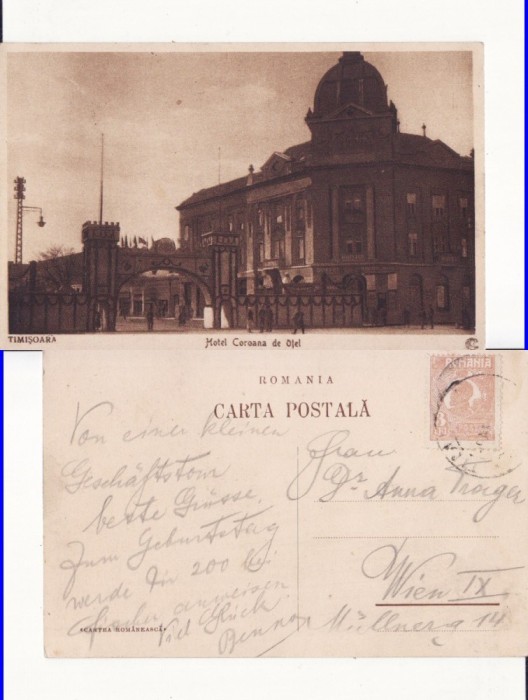 TIMIȘOARA
Hotel Coroana de Oțel
ROMANIA
CARTA POSTALĂ
ROMANIA
Von einer kleinen
Geschäftstour
beste Grüsse.
Zum Geburtstag
werde Dir 200 Lei
anweisen
Viel Glück
Benno
Frau
Dr Anna Trager
Wien IX
Müllnerg 14
«CARTEA ROMÂNEASCĂ»